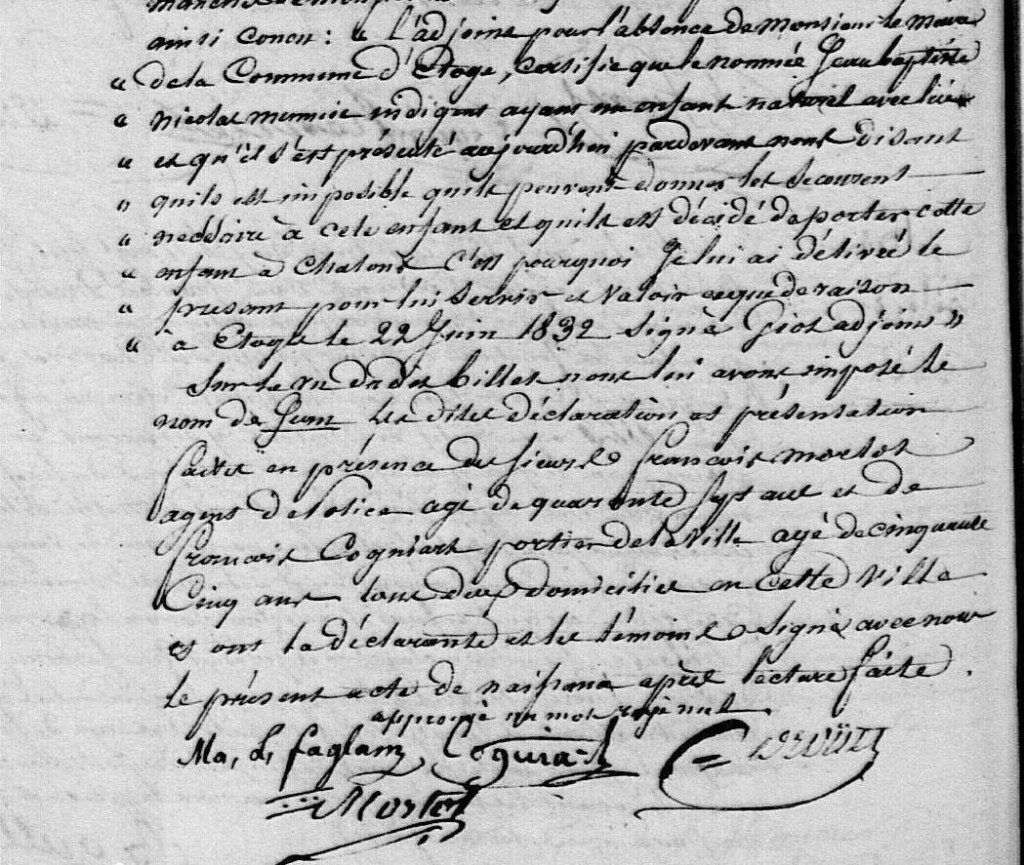 ainsi concu : " L'adjoint pour l'absence de Monsieur le maire
" de la Commune d'Etoge, certifie que le nommée Jean baptiste
" nicolas mennie indigent ayant un enfant naturel avec lui
" et qu'il s'est présenté aujourd'hui pardevant nous disant
" quils est imposible quils peuvent donner les secourent
" necésaire à cete enfant et quils est décidé de porter cette
" enfant à Chalons c'est pourquoi Je lui ai délivrée le
" present pour lui servir et valoir ce que de raison
" à Etoge le 22 Juin 1832 signé Giot adjoint "
Sur le vu du dit billet nous lui avons imposé le
nom de Les dites déclaration et présentation
faites en présence des sieurs François mortet
agent de Police agé de quarante sept ans et de
François Cogniart portier de la Ville agé de cinquante
Cinq ans tous deux domiciliés en cette Ville
et ont la déclarante et les témoins signé avec nous
le présent acte de naissance après lecture faite.
approuvé un mot rayé nul.
Ma, L, faglain Coguiart
Mortet